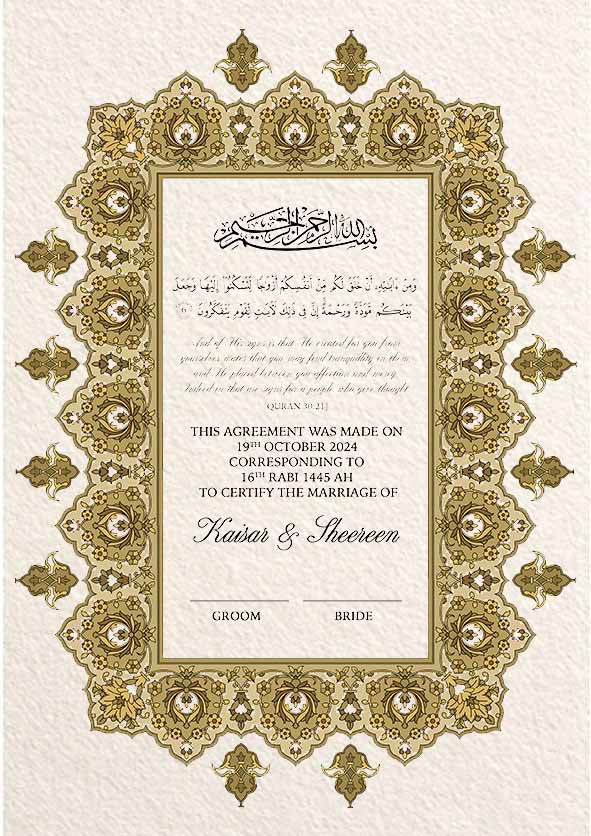 بسم الله الرحمن الرحيم
وَمِنْ ءَايَـٰتِهِۦٓ أَنْ خَلَقَ لَكُم مِّنْ أَنفُسِكُمْ أَزْوَٰجًا لِّتَسْكُنُوٓا۟ إِلَيْهَا وَجَعَلَ
بَيْنَكُم مَّوَدَّةً وَرَحْمَةً إِنَّ فِى ذَٰلِكَ لَـَٔايَـٰتٍ لِّقَوْمٍ يَتَفَكَّرُونَ
And of His signs is that He created for you from
yourselves mates that you may find tranquility in them
and He placed between you affection and mercy
Indeed in that are signs for a people who give thought
QURAN 30:21]
THIS AGREEMENT WAS MADE ON
19TH OCTOBER 2024
CORRESPONDING TO
16TH RABI 1445 AH
TO CERTIFY THE MARRIAGE OF
Kaisar & Sheereen
GROOM BRIDE